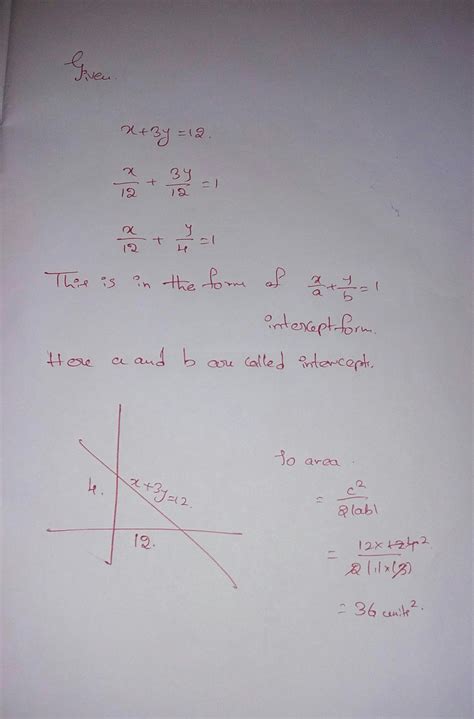 Given.
x+3y=12.
x/12 + 3y/12 = 1
x/12 + y/4 = 1
This is in the form of x/a + y/b = 1
intercept form.
Here a and b are called intercepts.
4.
x+3y=12.
12.
So area.
= c²/2|ab|
= 36 units².